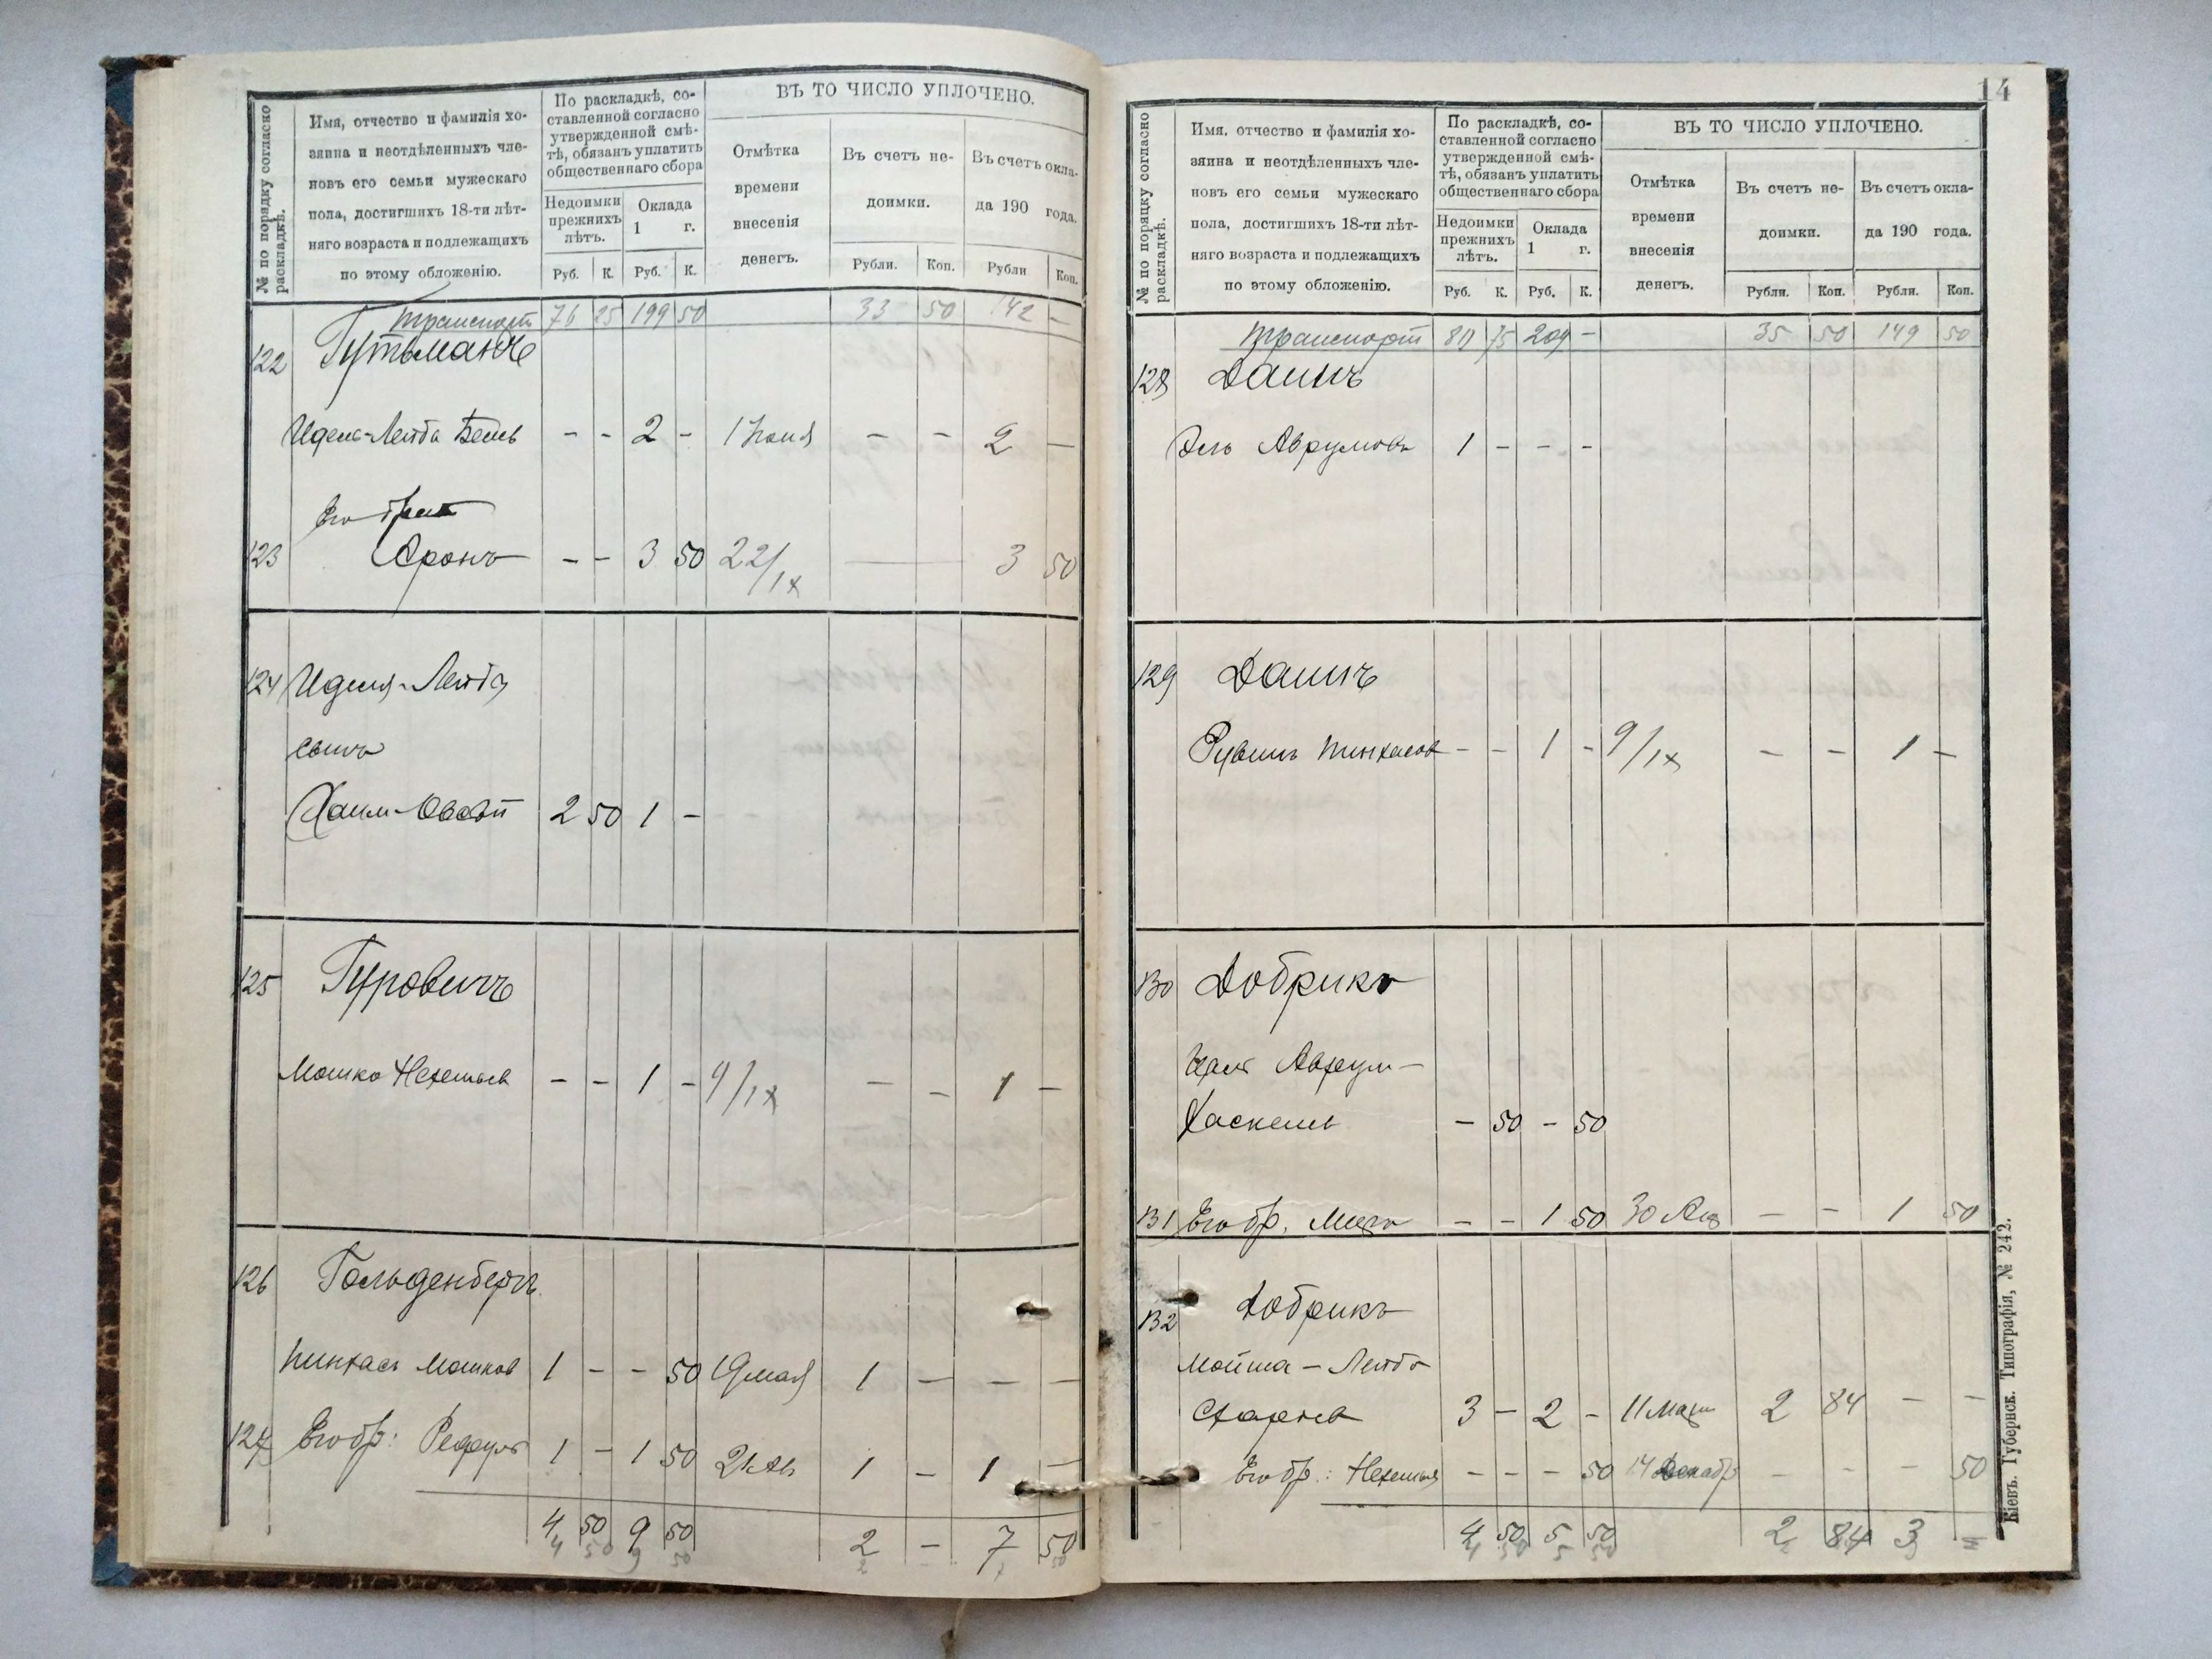 № по порядку согласно раскладкѣ.
Имя, отчество и фамилія хо-
зяина и неотдѣленныхъ чле-
новъ его семьи мужескаго
пола, достигшихъ 18-ти лѣт-
няго возраста и подлежащихъ
по этому обложенію.
По раскладкѣ, со-
ставленной согласно
утвержденной смѣ-
тѣ, обязанъ уплатить
общественнаго сбора
Недоимки
прежнихъ
лѣтъ.
Оклада
1 г.
Руб. К. Руб. К.
ВЪ ТО ЧИСЛО УПЛОЧЕНО.
Отмѣтка
времени
внесенія
денегъ.
Въ счетъ не-
доимки.
Въ счетъ окла-
да 190 года.
Рубли. Коп. Рубли Коп.
Транспорт 76 25 199 50 33 50 142 –
122 Гутьманъ
Идель-Лейба - - 2 - 1 Іюня - - 2 –
Его брат
123 Аронъ - - 3 50 22/IX 3 50
124 Иделя-Лейба
сынъ
Хаим- 2 50 1 -
125 Гуровичъ
Мошко Нехемьев - - 1 - 9/IX - - 1 -
126 Гольденбергъ
Пинхас Мошков 1 - - 50 19 мая 1 - - -
127 Его бр: Рефуль 1 - 1 50 1 - 1 -
4 50 9 50 2 - 7 50
4 50 9 50 2 7 50
14
№ по порядку согласно раскладкѣ.
Имя. отчество и фамилія хо-
зяина и неотдѣленныхъ чле-
новъ его семьи мужескаго
пола, достигшихъ 18-ти лѣт-
няго возраста и подлежащихъ
по этому обложенію.
По раскладкѣ, со-
ставленной согласно
утвержденной смѣ-
тѣ, обязанъ уплатить
общественнаго сбора
Недоимки
прежнихъ
лѣтъ.
Оклада
1 г.
Руб. К. Руб. К.
ВЪ ТО ЧИСЛО УПЛОЧЕНО.
Отмѣтка
времени
внесенія
денегъ.
Въ счетъ не-
доимки.
Въ счетъ окла-
да 190 года.
Рубли. Коп. Рубли. Коп.
Транспорт 80 75 209 - 35 50 149 50
128 Даинъ
Эль Аврумовъ 1 - - -
129 Даинъ
Рувинъ Пинхасов - - 1 - 9/IX - - 1 -
130 Добрикъ
Аврум-
Хаскель - 50 - 50
131 Его бр. - - 1 50 30 - - 1 50
132 Добрикъ
Мойша-Лейба
3 - 2 - 11 2 84 - -
Его бр.: Нехемья - - - 50 14 декабр - - - 50
4 50 5 50 2 84 3 =
4 50 5 50 2 84 3
Кіевъ. Губернск. Типографія, № 242.